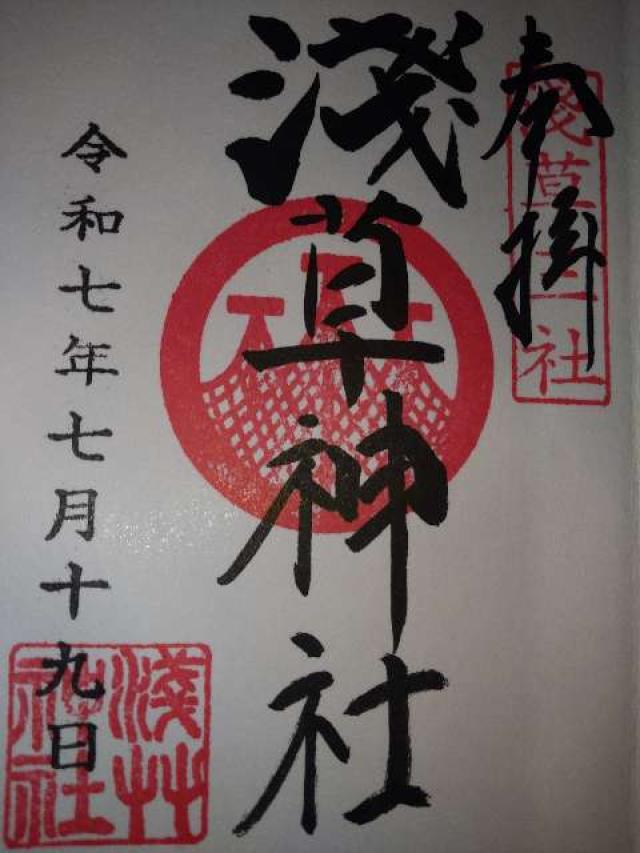 奉掛
淺草三社
淺草神社
令和七年七月十九日
淺草神社